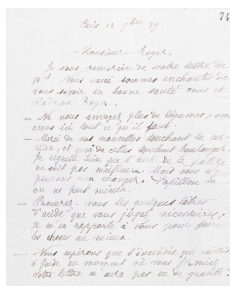 76
Paris 12 9bre 79
Monsieur Roger,
Je vous remercie de votre lettre du
11 ct. Nous aussi sommes enchantés de
vous savoir en bonne santé vous et
Madame Roger.
— Ne nous envoyez plus de légumes, nous
avons ici tout ce qu'il faut.
— Merci de vos nouvelles touchant la
et celles touchant Boulanger.
Je regrette bien que l'état de la
ne soit pas meilleur. Mais nous n'y
pouvons rien changer. Papillon la
on ne peut mieux.
— Procurez nous les quelques litres
d'acide que vous jugez nécessaires,
je m'en rapporte à vous pour faire
les choses au mieux.
— Nous espérons que l'incendie qui
au moment où vous
votre lettre n'aura pas eu de gravité.